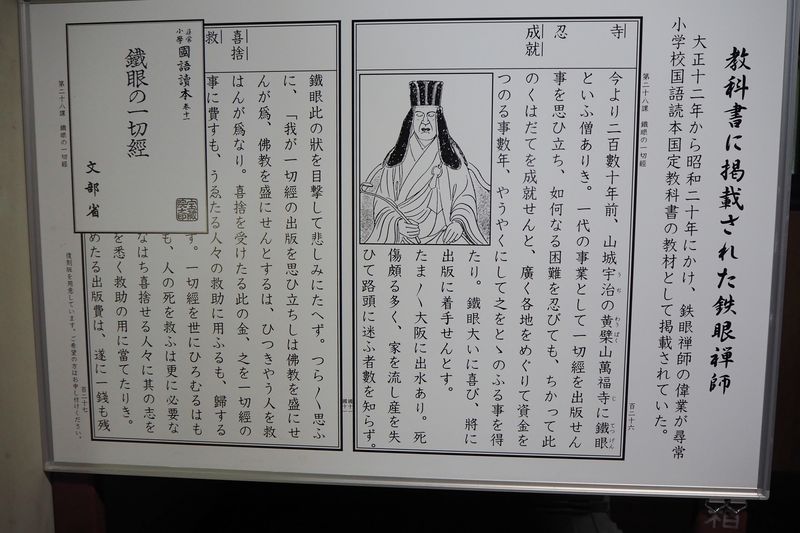 教科書に掲載された鉄眼禅師
大正十二年から昭和二十年にかけ、鉄眼禅師の偉業が尋常
小学校国語読本国定教科書の教材として掲載されていた。
第二十八課 鐵眼の一切經
百二十六
寺
忍
成就
今より二百數十年前、山城宇治の黄檗山萬福寺に鐵眼
うぢ わうばく じ てつげん
といふ僧ありき。一代の事業として一切經を出版せん
事を思ひ立ち、如何なる困難を忍びても、ちかって此
のくはだてを成就せんと、廣く各地をめぐりて資金を
つのる事數年、やうやくにして之をとゝのふる事を得
たり。鐵眼大いに喜び、將に
出版に着手せんとす。
たま〱大阪に出水あり。死
傷頗る多く、家を流し産を失
ひて路頭に迷ふ者數を知らず。
喜捨
救
鐵眼此の狀を目撃して悲しみにたへず。つら〱思ふ
に、「我が一切經の出版を思ひ立ちしは佛教を盛にせ
んが爲、佛教を盛にせんとするは、ひつきやう人を救
はんが爲なり。喜捨を受けたる此の金、之を一切經の
事に費すも、うゑたる人々の救助に用ふるも、歸する
す。一切經を世にひろむるはも
も、人の死を救ふは更に必要な
なはち喜捨せる人々に其の志を
を悉く救助の用に當てたりき。
めたる出版費は、遂に一錢も残
百二十七
尋常小學 國語讀本 卷十一
鐵眼の一切經
文部省
第二十八課 鐵眼の一切經
復刻版を用意しています。ご希望の方はお申し付けください。